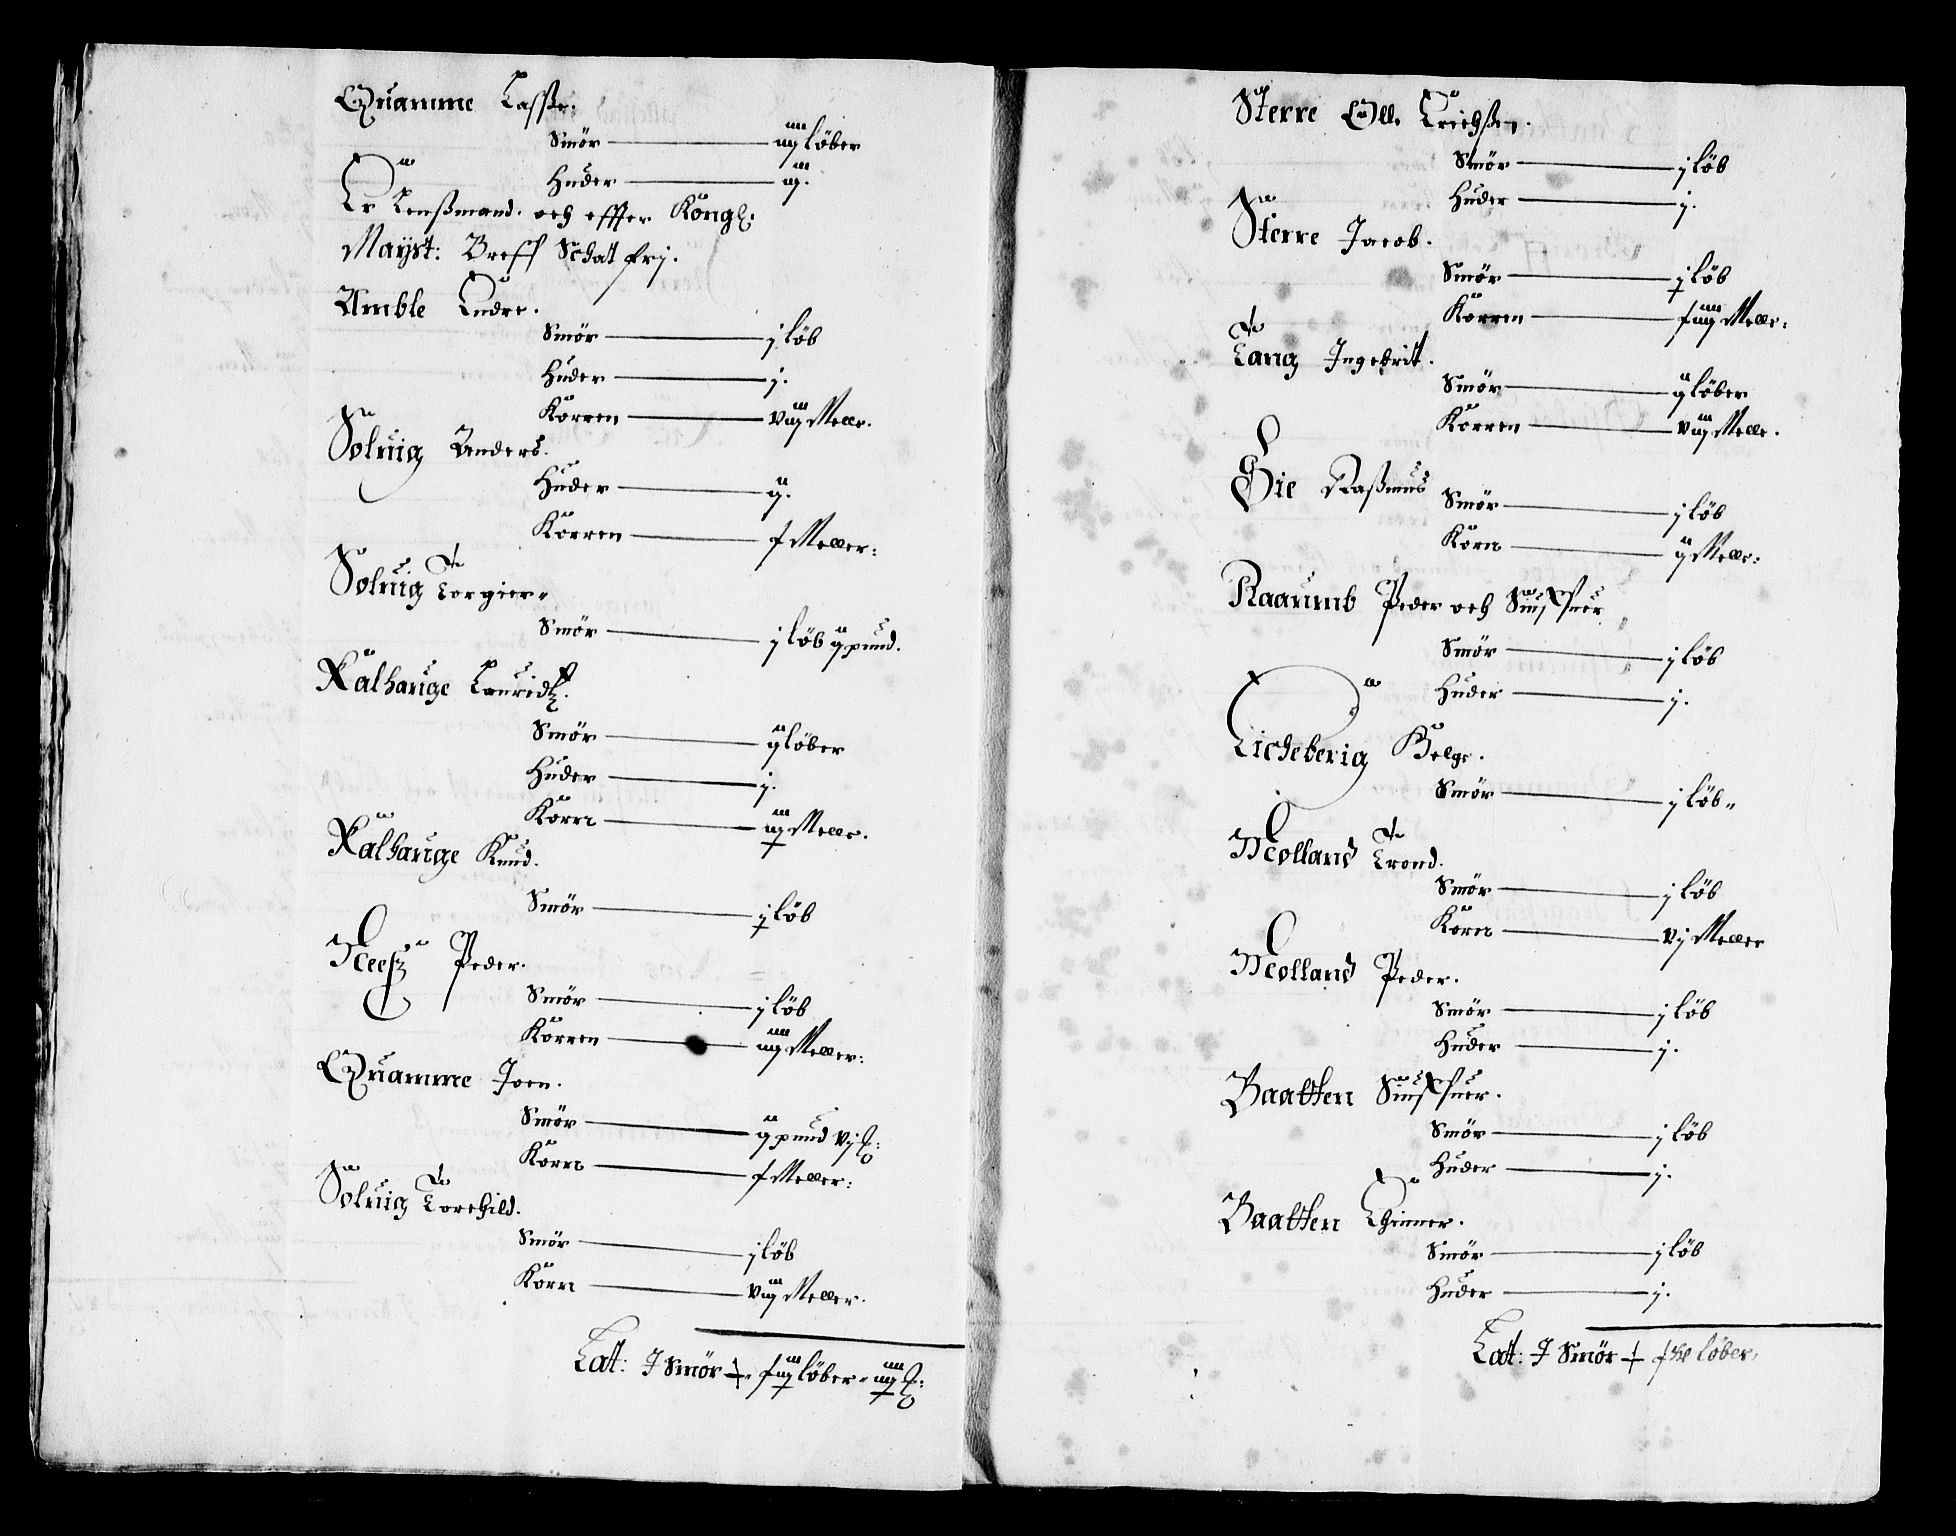 Quamme Lasße.
Smör — iiij löber
Huder — iij.
Er Lenßmand. och effter Köngl:
Mayst: Breff Schat frj.
Amble Endre.
Smör — j löb
Huder — j.
Korren — viij Meller.
Soluig Anders.
Huder — ij.
Korren — x Meller:
Soluig Torgier„
Smör — j löb ij pund.
Kalhauge Lauridtz.
Smör — ij löber
Huder — j.
Korn — iij Meller.
Kalhauge Knud.
Smör — j löb
Neeß Peder.
Smör — j löb
Korren — iiij Meller:
Quamme Joen.
Smör — ij pund vj
Korn — x Meller:
Soluig Torchild.
Smör — j löb
Korn — viij Meller.
Lat: J Smör — xiij löber „ iiij
Sterre Olle Erichßen.
Smör — j löb
Huder — j.
Sterre Jacob.
Smör — j löb
Korren — xiiij Meller:
Tang Ingebrit.
Smör — ij löber
Korren — viij Meller.
Hie Raßmus
Smör — j löb
Korn — ij Meller:
Raaumb Peder och Siuffuer
Smör — j löb
Huder — j.
Eicheberig Helge.
Smör — j löb„
Molland Trond.
Smör — j löb
Korn — vj Meller
Molland Peder.
Smör — j löb
Huder — j.
Baatten Siuffuer.
Smör — j löb
Huder — j.
Baatten Ehinner.
Smör — j löb
Huder — j.
Lat: J Smör — löber,